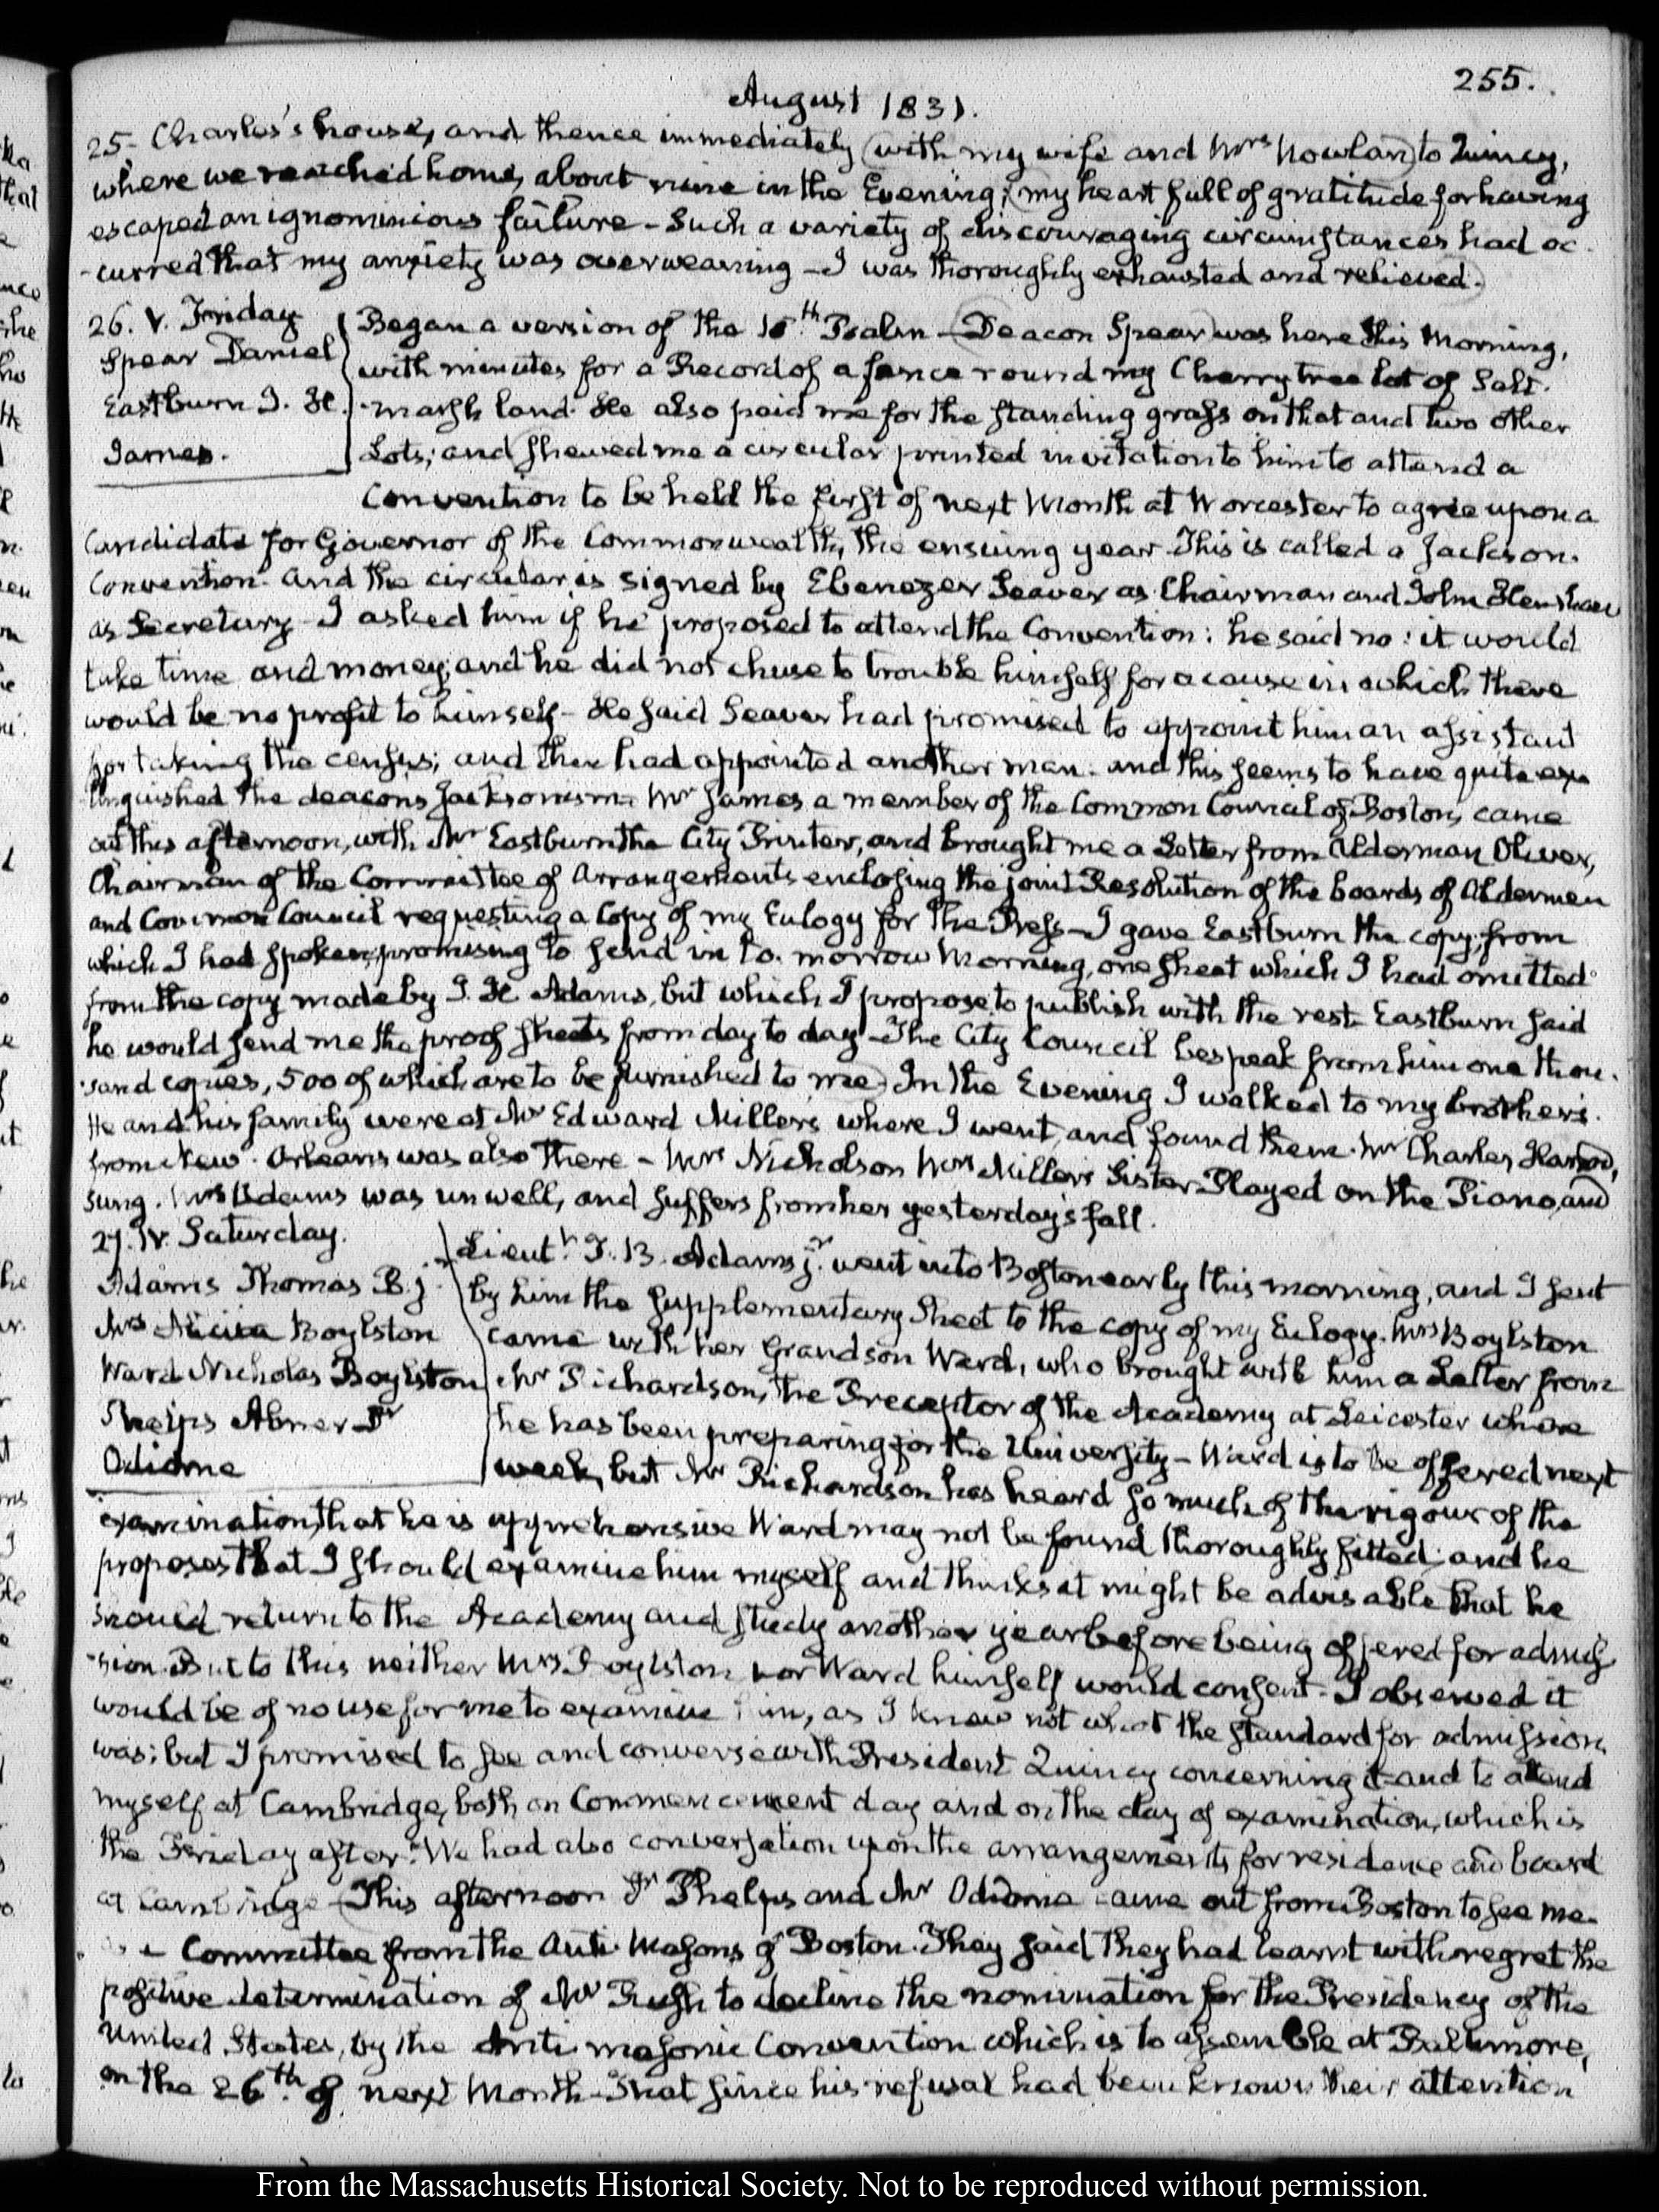 255.
August 1831.
25- Charles's house, and thence immediately (with my wife and Mrs Nowlan) to Quincy,
where we reached home, about nine in the Evening; (my heart full of gratitude for having
escaped an ignominious failure - Such a variety of discouraging circumstances had oc-
-curred that my anxiety was overweaning - I was thoroughly exhausted and relieved.)
26. V. Friday
Spear Daniel
Eastburn J. H.
James.
Began a version of the 15th Psalm - Deacon Spear was here this Morning,
with minutes for a Record of a fence round my Cherry tree lot of Salt-
-marsh land. He also paid me for the standing grass on that and two other
Lots; and shewed me a circular printed invitation to him to attend a
Convention to be held the first of next Month at Worcester to agree upon a
Candidate for Governor of the Commonwealth, the ensuing year. This is called a Jackson-
Convention. and the circular is signed by Ebenezer Seaver as Chairman and John Henshaw
as Secretary - I asked him if he proposed to attend the Convention: he said no: it would
take time and money; and he did not chuse to trouble himself for a cause in which there
would be no profit to himself - He said Seaver had promised to appoint him an assistant
for taking the census; and then had appointed another man: and this seems to have quite ex-
-tinguished the deacons Jacksonism. Mr James a member of the Common Council of Boston, came
out this afternoon, with Mr Eastburn the City Printer, and brought me a Letter from Alderman Oliver,
Chairman of the Committee of Arrangements enclosing the joint Resolution of the boards of Aldermen
and Common Council requesting a Copy of my Eulogy for the Press - I gave Eastburn the copy, from
which I had spoken, promising to send in to-morrow Morning, one sheet which I had omitted
from the copy made by I. H. Adams, but which I propose to publish with the rest. Eastburn said
he would send me the proof sheets from day to day - The City Council bespeak from him one thou-
-sand copies, 500 of which are to be furnished to me) In the Evening I walked to my brother's.
He and his family were at Mr Edward Miller's where I went, and found them. Mr Charles Harrod,
from New-Orleans was also there - Mrs Nicholson Mrs Miller's Sister Played on the Piano, and
sung. Mrs Adams was unwell, and suffers from her yesterday's fall.
27. IV. Saturday.
Adams Thomas B. j.
Mrs Alicia Boylston
Ward Nicholas Boylston
Phelps Abner Dr
Odiorne
Lieutt T. B. Adams jr. went into Boston early this morning, and I sent
by him the supplementary Sheet to the copy of my Eulogy. Mrs Boylston
came with her Grandson Ward, who brought with him a Letter from
Mr Richardson, the Preceptor of the Academy at Leicester where
he has been preparing for the University - Ward is to be offered next
week, but Mr Richardson has heard so much of the rigour of the
examination, that he is apprehensive Ward may not be found thoroughly fitted; and he
proposes that I should examine him myself and thinks it might be advisable that he
should return to the Academy and study another year before being offered for admis-
-sion. But to this neither Mrs Boylston nor Ward himself would consent. I observed it
would be of no use for me to examine him, as I know not what the standard for admission
was; but I promised to see and converse with President Quincy concerning it and to attend
myself at Cambridge, both on Commencement day and on the day of examination, which is
the Friday after. We had also conversation upon the arrangements for residence and board
at Cambridge - (This afternoon Dr Phelps and Mr Odiorne came out from Boston to see me-
as a Committee from the Anti-Masons of Boston. They said they had learnt with regret the
positive determination of Mr Rush to decline the nomination for the Presidency of the
United States, by the Anti-masonic Convention which is to assemble at Baltimore,
on the 26th of next Month - That since his refusal had been known their attention
From the Massachusetts Historical Society. Not to be reproduced without permission.